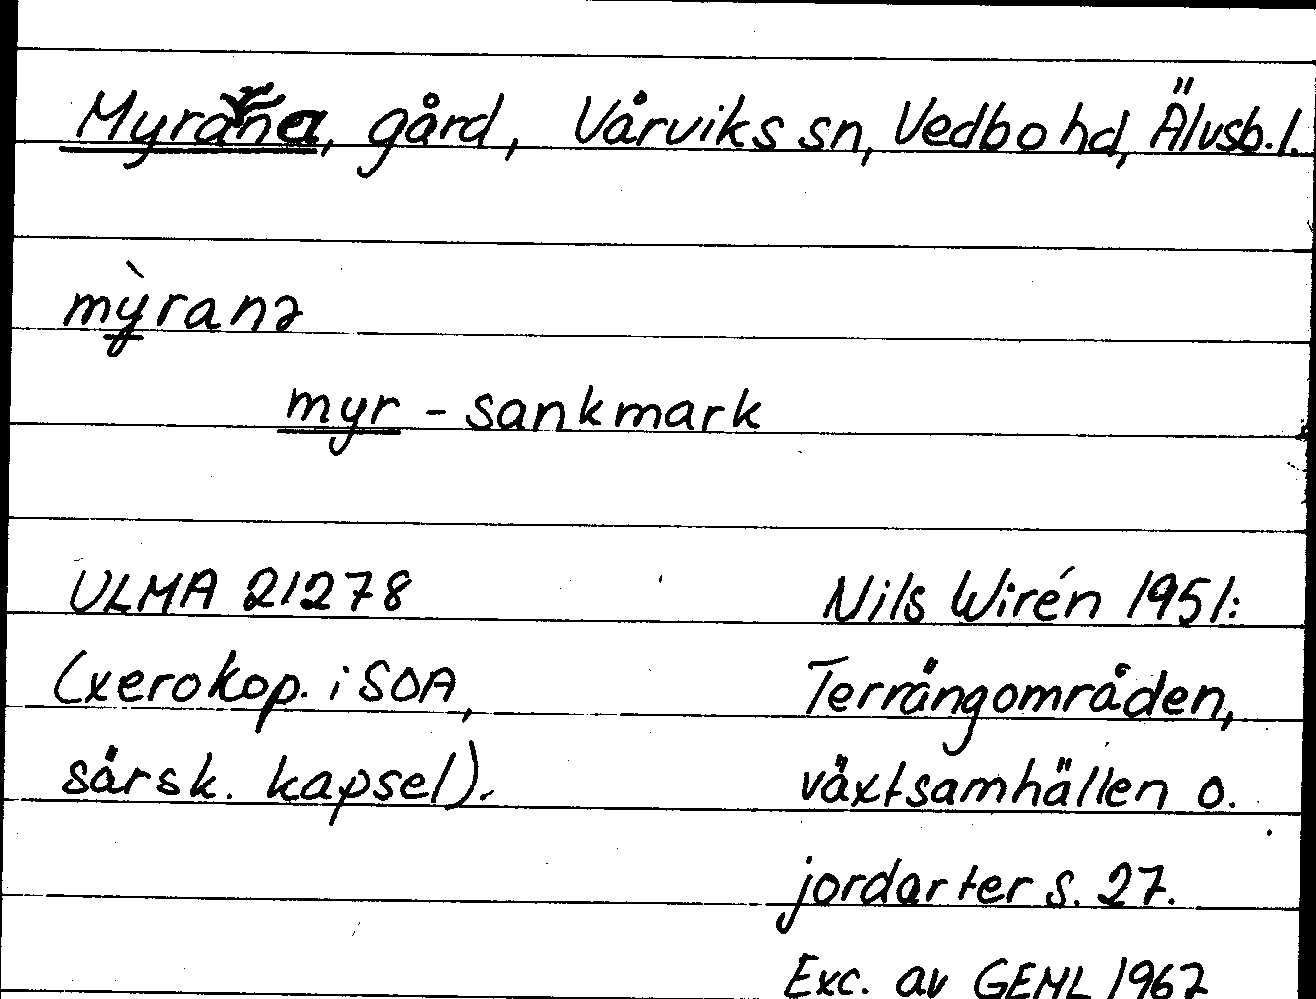 Myrarna, gård, Vårviks sn, Vedbo hd, Älvsb. l.
mỳranə
myr - sankmark
ULMA 21278
Nils Wirén 1951:
(xerokop. i SOA,
Terrängområden,
särsk. kapsel).
växtsamhällen o.
jordarter s. 27.
Exc. av GEML 1967